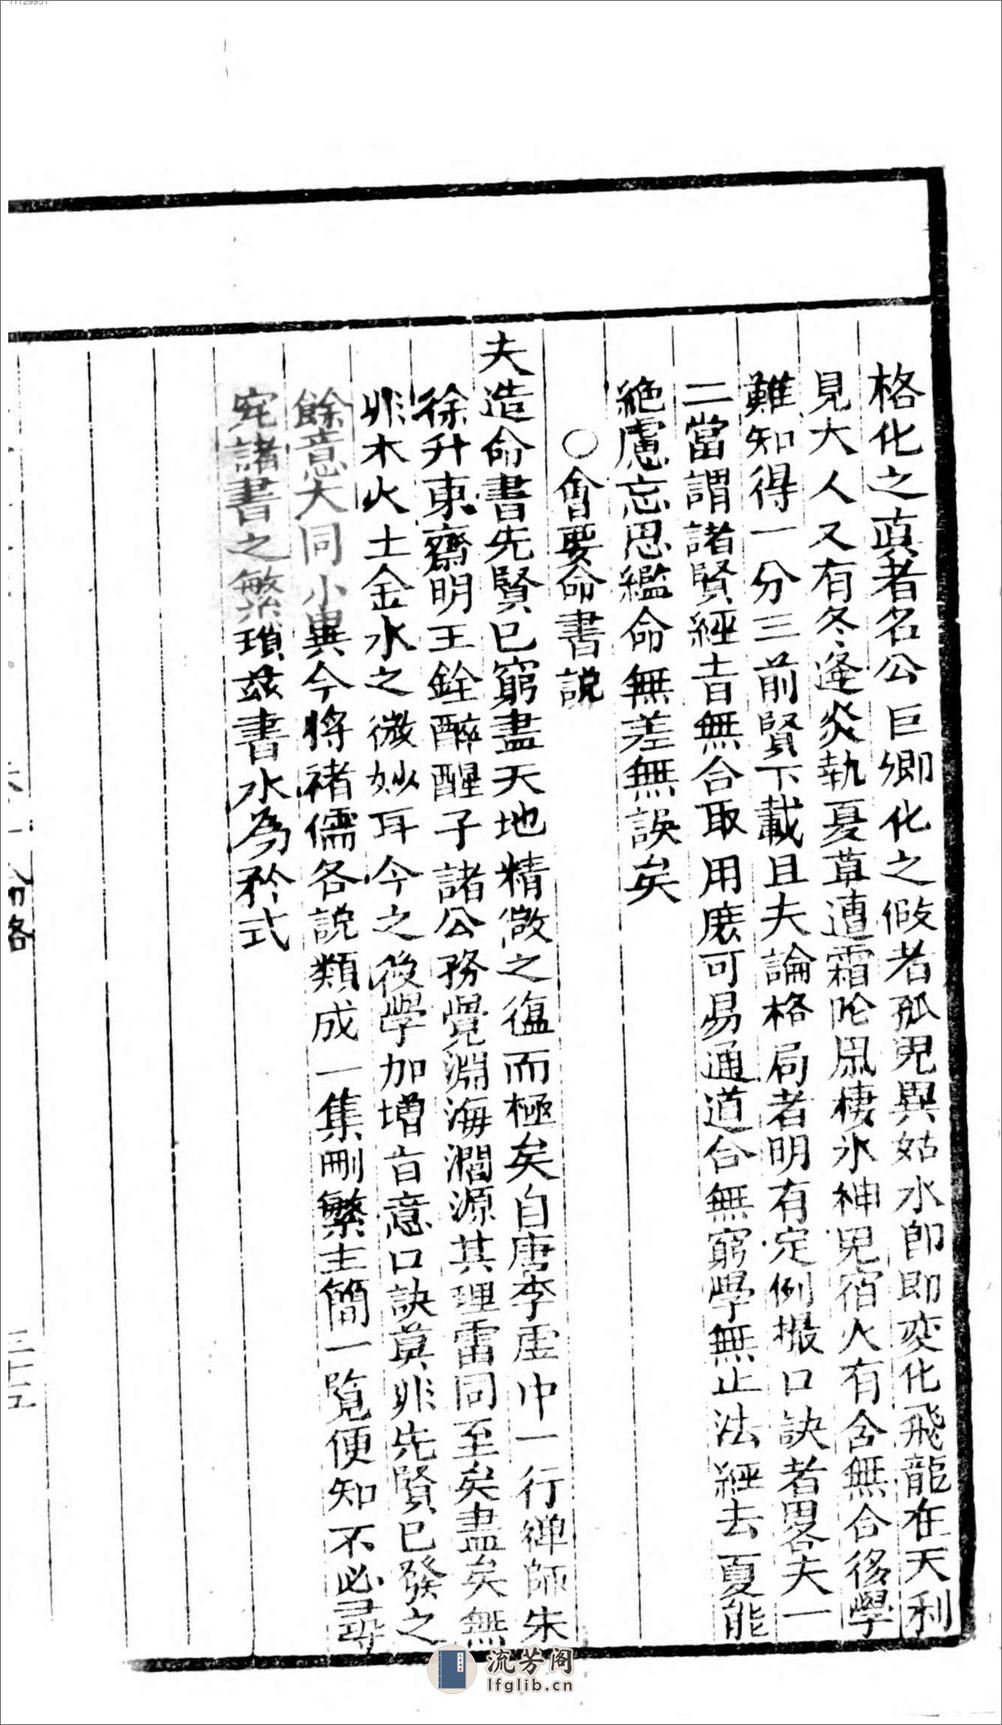 格化之真者名公巨卿化之假者孤兒異姑水即即变化飛龍在天利
見大人又有冬逢炎執夏草遭霜陰鼠棲氷神黽宿火有含無合後學
難知得一分三前賢下載且夫論格局者明有定例撮口訣者畧夫一
二當謂諸賢經旨無合取用庶可易通道合無窮學無止法經去夏能
絶慮忘思鑑命無差無誤矣
○會要命書説
夫造命書先賢已窮盡天地精微之蕴而極矣自唐李虛中一行禅師朱
徐升東齋明王銓醉醒子諸公務覺淵海澗源其理雷同至矣盡矣無
非木火土金水之微妙耳今之後學加增旨意口訣莫非先賢已發之
餘意大同小異今將褚儒各説類成一集刪繁主簡一覧便知不必尋
究諸書之繁瑣兹書永為矜式
三十五
流芳阁
lfglib.cn